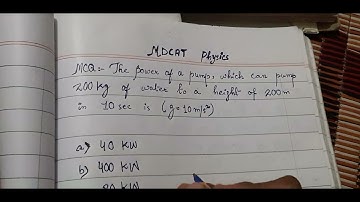 MDCAT Physics
MCQ:- The power of a pump, which can pump
200 Kg of water to a height of 200m
in 10 sec is (g = 10m/s²)
a) 40 KW
b) 400 KW
80 KW